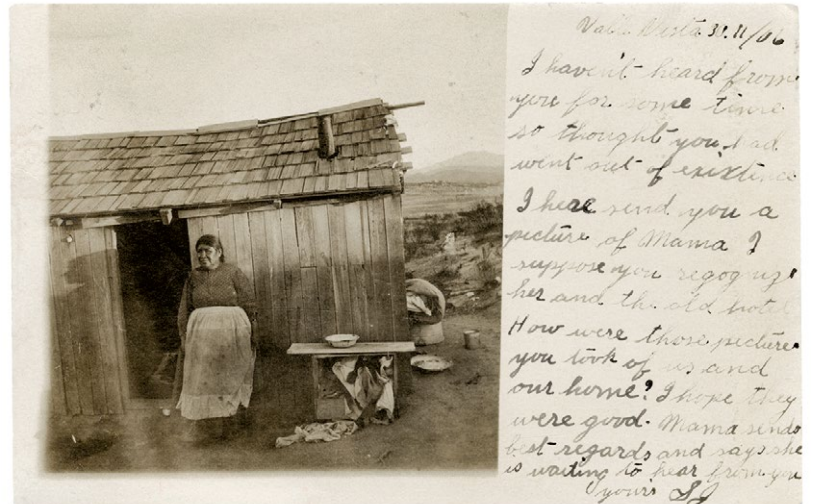 Valle Vista 30.11/06
I haven't heard from
you for some time
so thought you had
went out of existence
I here send you a
picture of Mama I
suppose you regognize
her and the old hotel
How were those pictures
you took of us and
our home? I hope they
were good. Mama sends
best regards and says she
is waiting to hear from you
yours